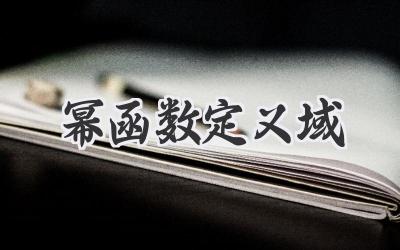 幂函数定义域